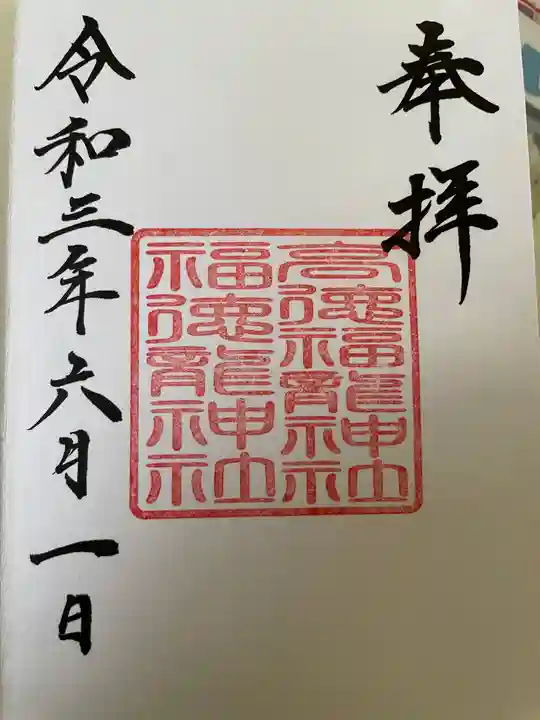 奉拝
高德福龍神社
福德龍神社
令和三年六月一日